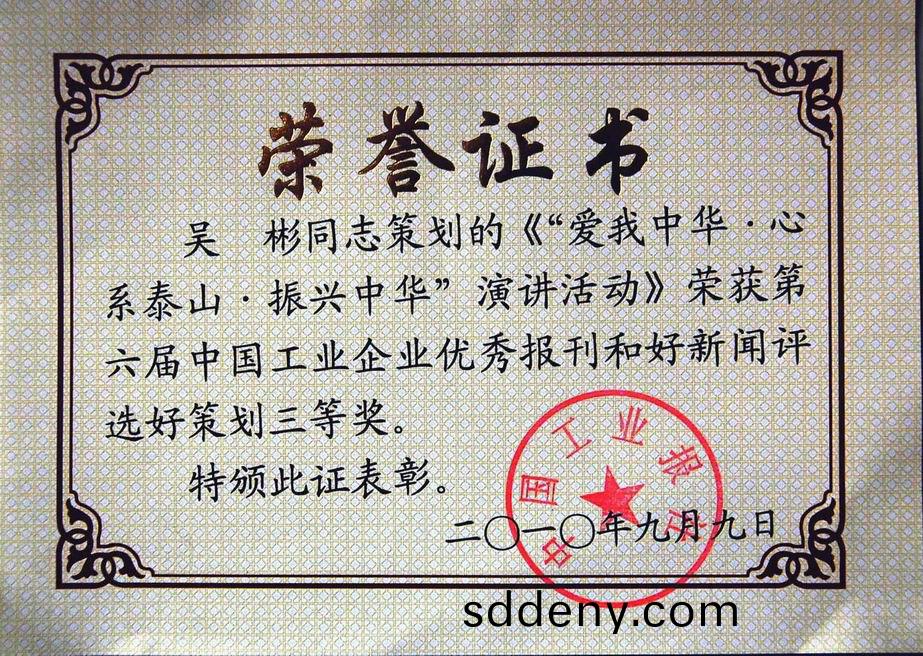 荣誉证书
吴 彬同志策划的《“爱我中华·心
系泰山·振兴中华”演讲活动》荣获第
六届中国工业企业优秀报刊和好新闻评
选好策划三等奖。
特颁此证表彰。
中国工业报社
二〇一〇年九月九日
sddeny.com